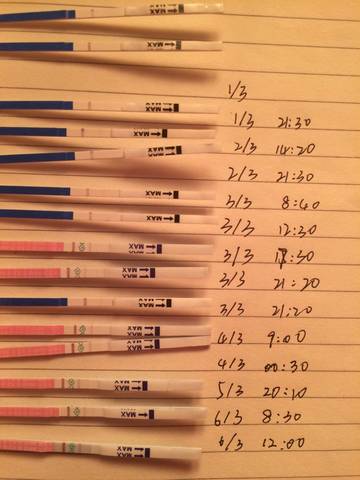 MAX
MAX
1/3
MAX
1/3 21:30
MAX
2/3 14:20
MAX
2/3 21:30
MAX
3/3 8:40
MAX
3/3 12:30
MAX
3/3
MAX
3/3 21:20
MAX
3/3 21:20
MAX
4/3 9:00
MAX
4/3 00:30
MAX
5/3 20:10
MAX
6/3 8:30
6/3 12:00
MAX